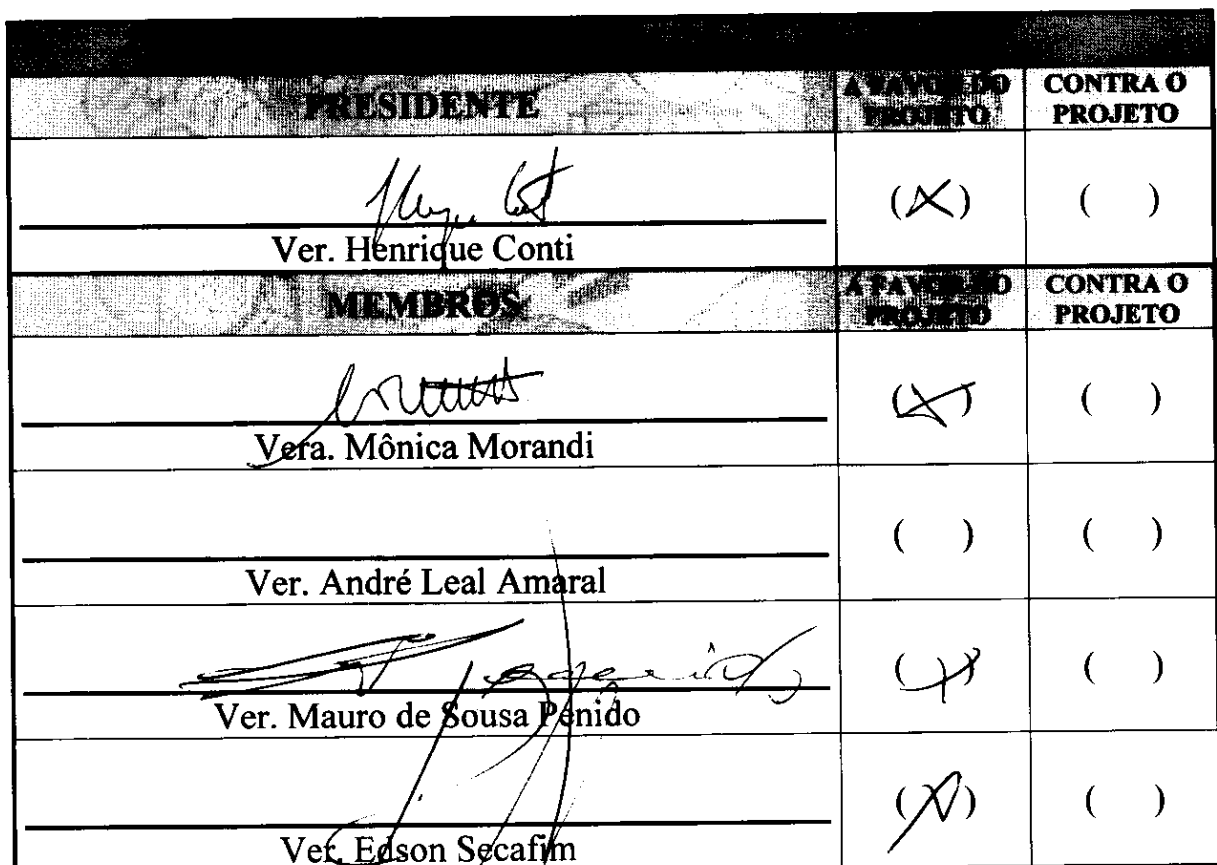 PRESIDENTE A FAVOR DO PROJETO CONTRA O PROJETO
(X) ( )
Ver. Henrique Conti
MEMBROS A FAVOR DO PROJETO CONTRA O PROJETO
(X) ( )
Vera. Mônica Morandi
( ) ( )
Ver. André Leal Amaral
(X) ( )
Ver. Mauro de Sousa Penido
(X) ( )
Ver. Edson Secafim